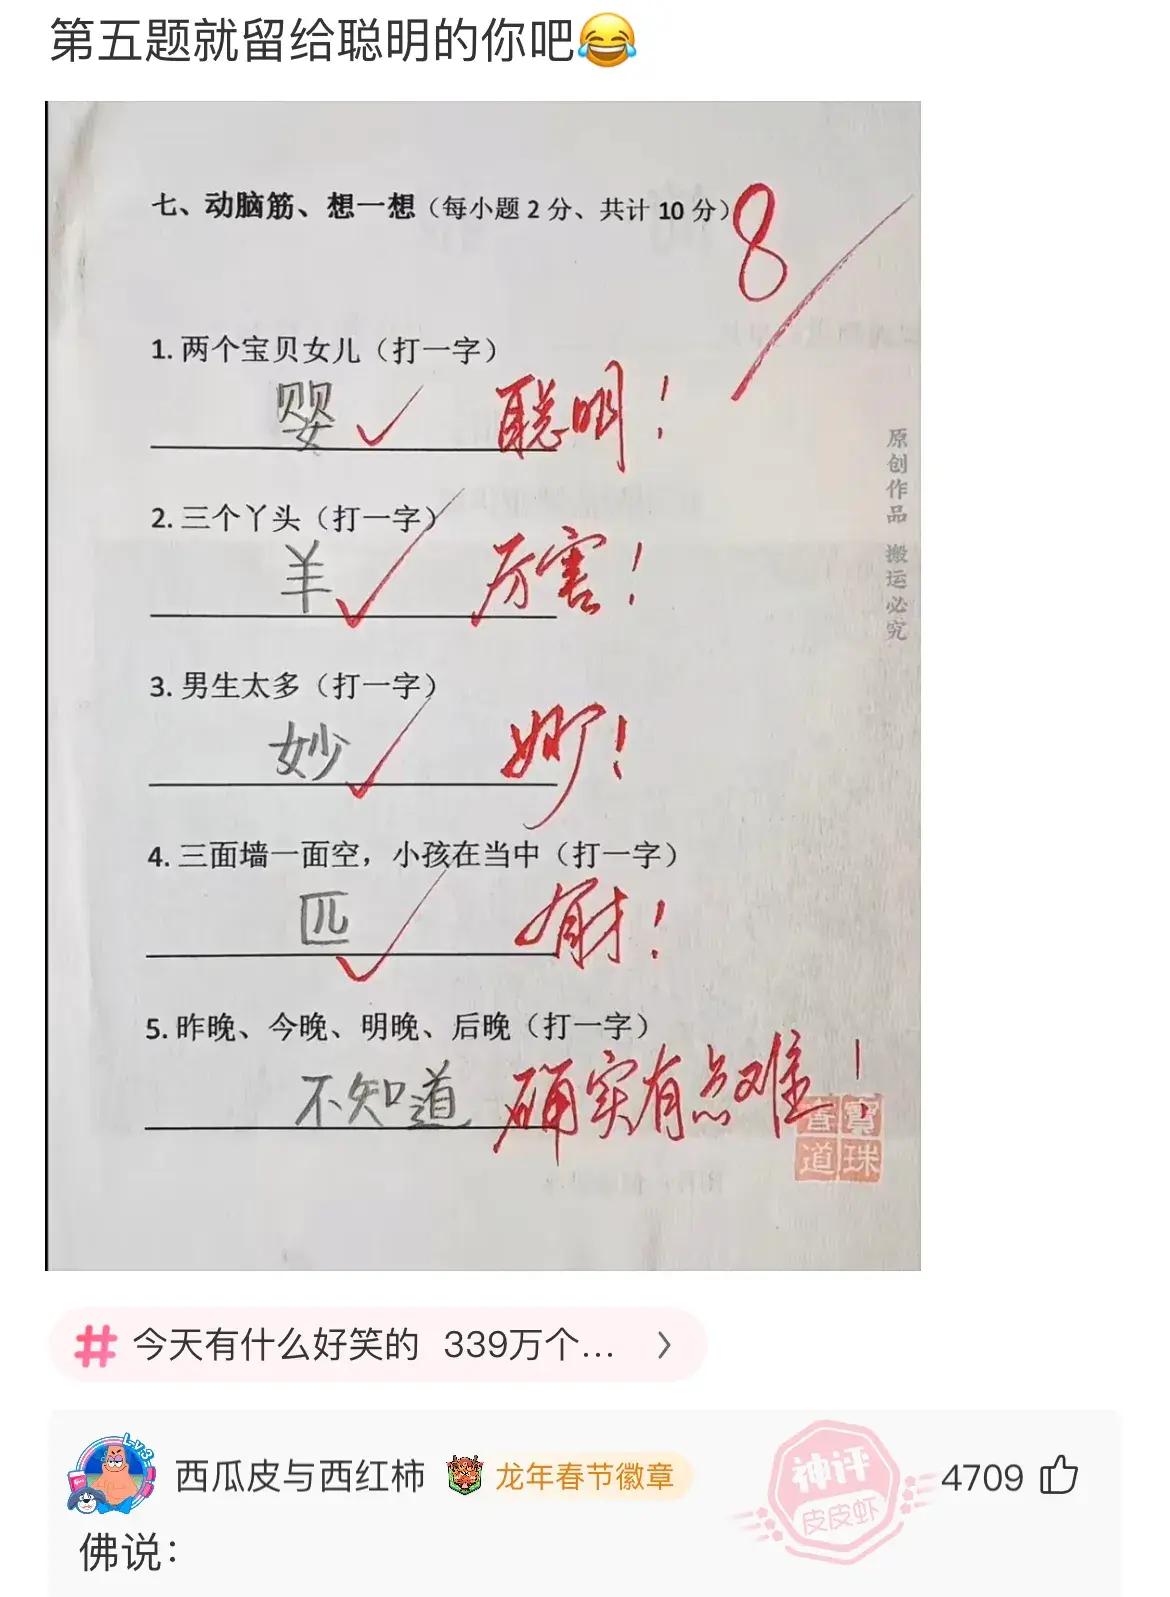 第五题就留给聪明的你吧😂
七、动脑筋、想一想（每小题 2 分、共计 10 分）
8
1. 两个宝贝女儿（打一字）
婴 聪明！
2. 三个丫头（打一字）
羊 厉害！
3. 男生太多（打一字）
妙 妙！
4. 三面墙一面空，小孩在当中（打一字）
匹 有才！
5. 昨晚、今晚、明晚、后晚（打一字）
不知道 确实有点难！
原创作品 搬运必究
寶珠
道
# 今天有什么好笑的 339万个... >
Lv.3
西瓜皮与西红柿 龙年春节徽章
神评
皮皮虾
4709
佛说：